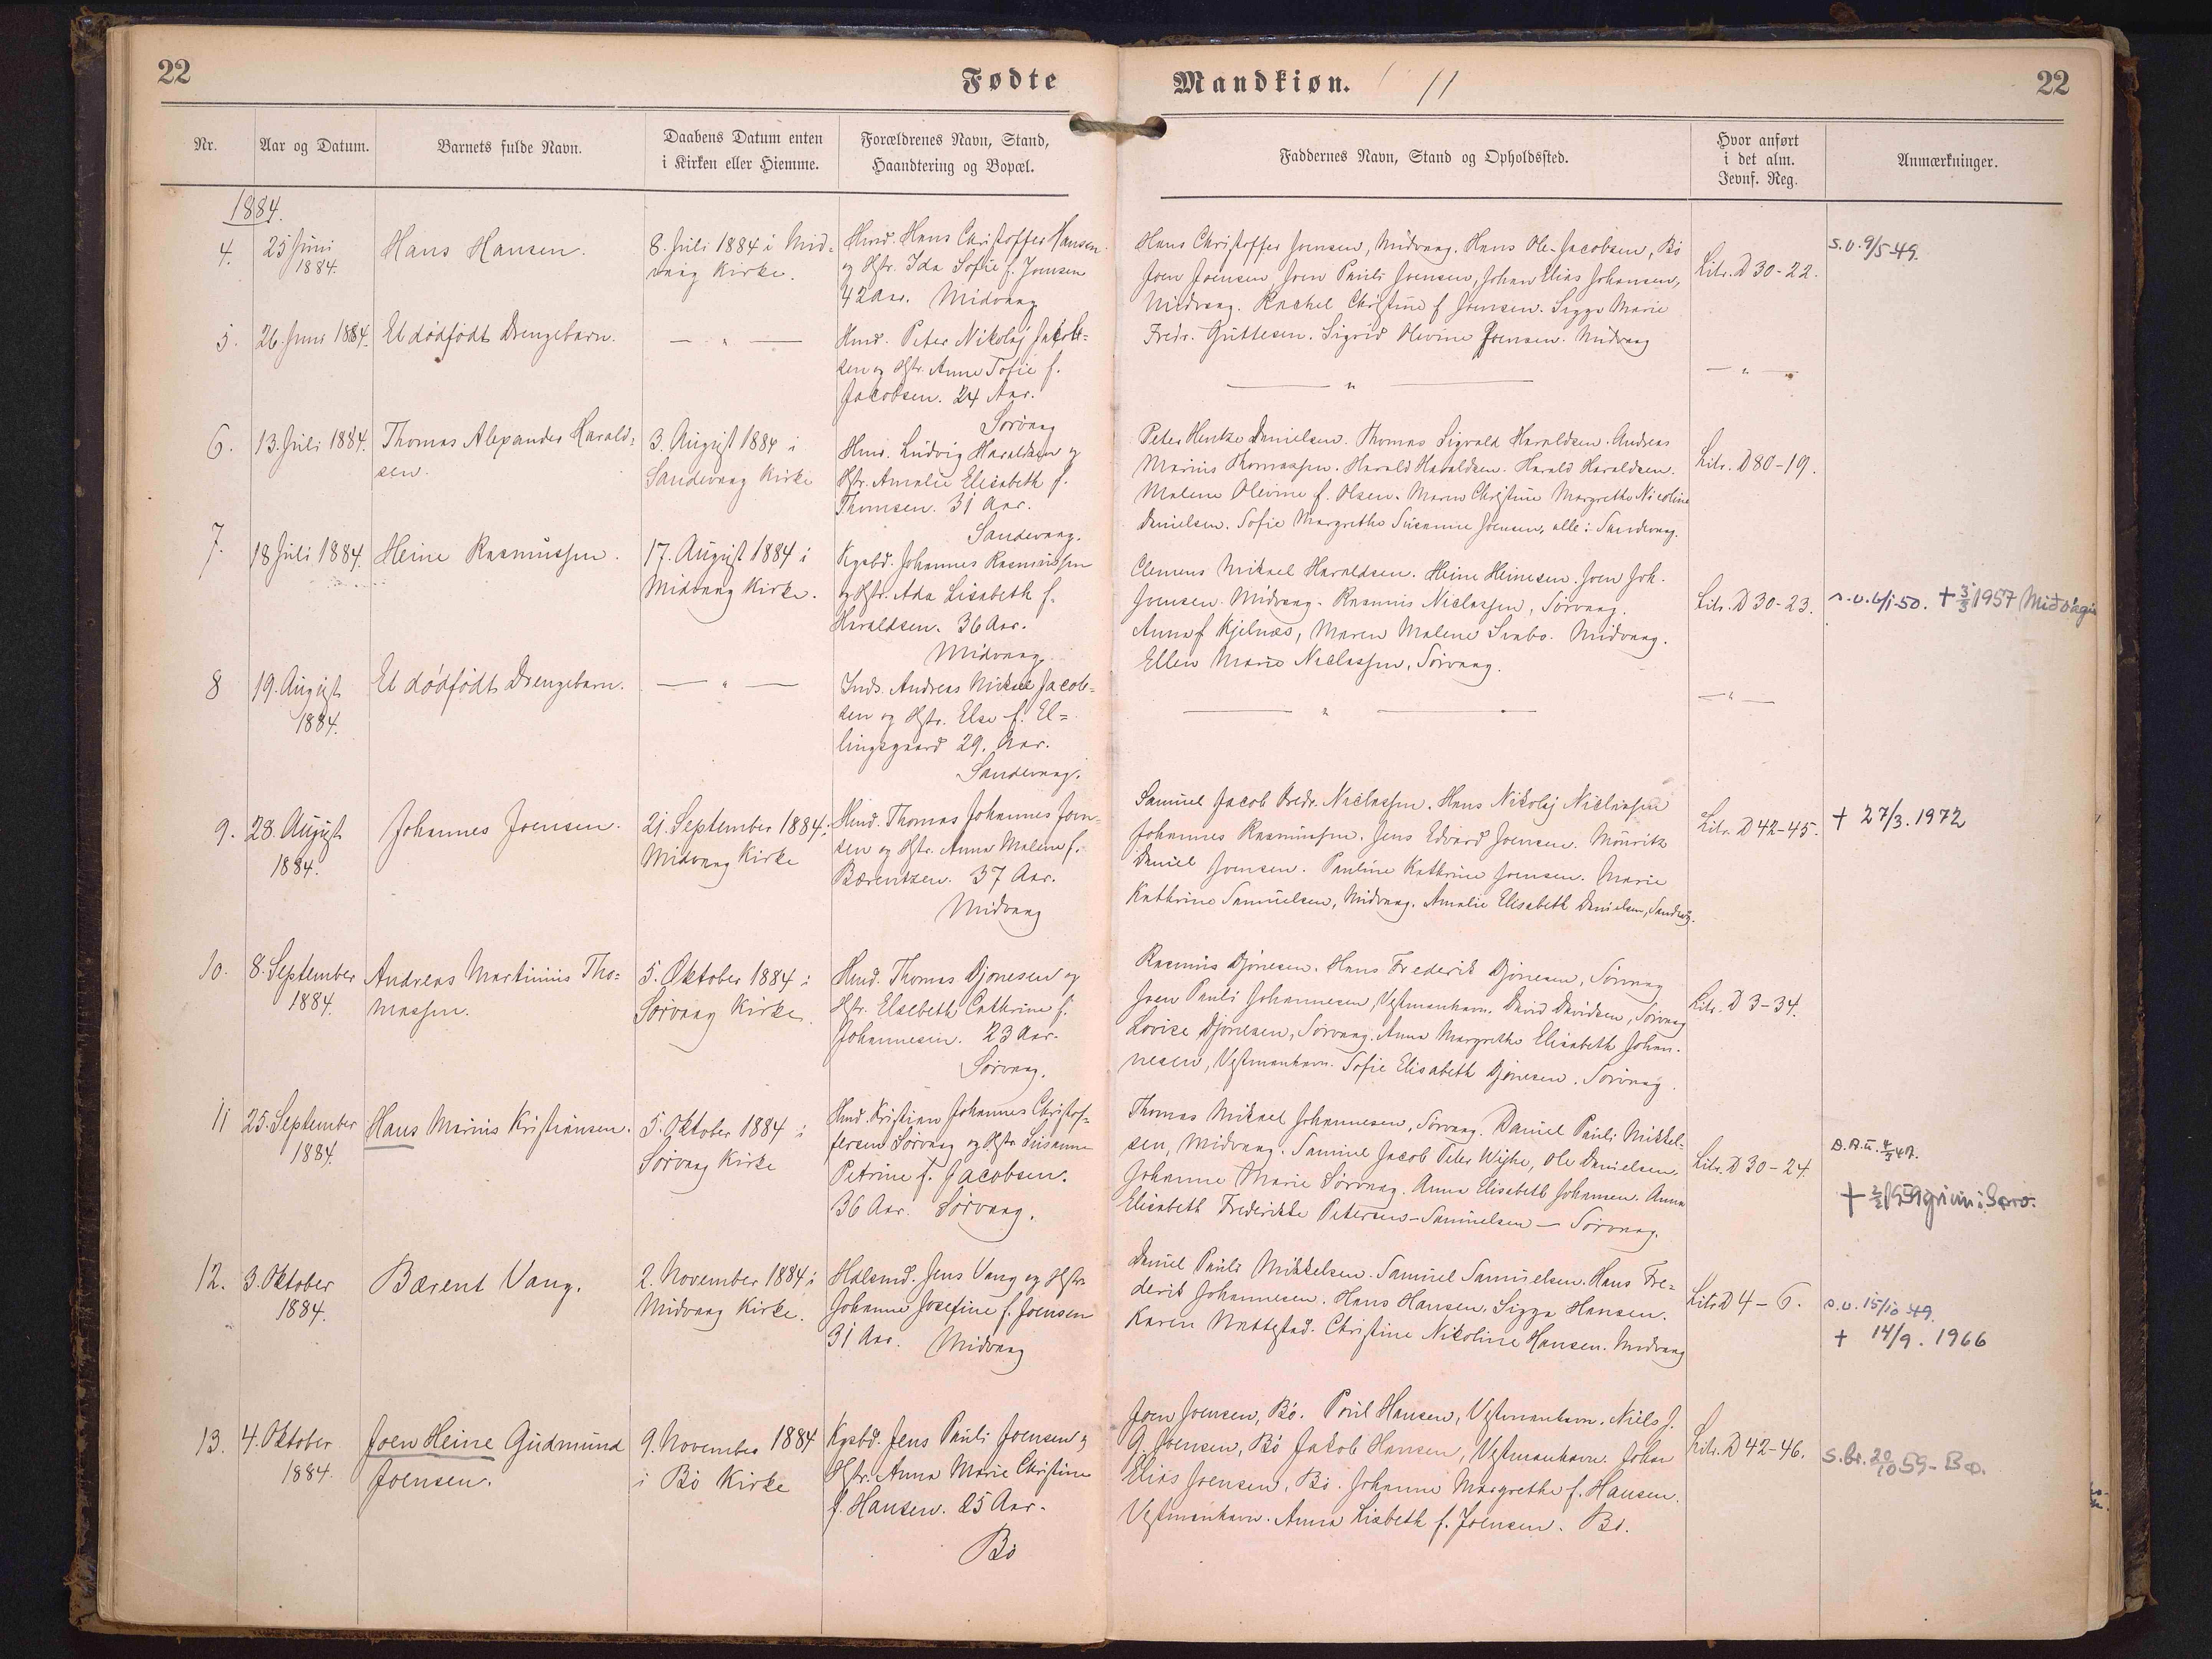 22
Fødte
Mandkiøn.
11
22
Nr.
Aar og Datum.
Barnets fulde Navn.
Daabens Datum enten
i Kirken eller Hiemme.
Forældrenes Navn, Stand,
Haandtering og Bopæl.
Faddernes Navn, Stand og Opholdssted.
Hvor anført
i det alm.
Jevnf. Reg.
Anmærkninger.
1884.
4.
25 Juni
1884.
Hans Hansen.
8. Juli 1884 i Mid-
vaag Kirke.
Hmd. Hans Christoffer Hansen
og Hstr. Ida Sofie f. Joensen
42 Aar. Midvaag
Hans Christoffer Joensen, Midvaag. Hans Ole Jacobsen, Bö
Joen Joensen, Joen Pauli Joensen, Johan Elias Johansen,
Midvaag. Rachel Christine f. Joensen. Sigga Marie
Fredr. Guttesen. Sigrid Olevine Joensen. Midvaag
Litr. D 30-22.
s.v. 9/5-49.
5.
26. Juni 1884.
Et dødfødt Drengebarn.
— " —
Hmd. Peter Nikolaj Jakob-
sen og Hstr. Anne Sofie f.
Jacobsen. 24 Aar.
Sörvaag
— " —
— " —
6.
13. Juli 1884.
Thomas Alexander Harald-
sen.
3. August 1884 i
Sandevaag Kirke
Hmd. Ludvig Haraldsen og
Hstr. Amalie Elisabeth f.
Thomsen. 31 Aar.
Sandevaag.
Peter Hentze Danielsen. Thomas Sigvald Haraldsen. Andreas
Marius Thomassen. Harald Haraldsen. Harald Haraldsen.
Malene Olevine f. Olsen. Maren Christine Margrethe Nicoline
Danielsen. Sofie Margrethe Susanne Joensen, alle i Sandevaag.
Litr. D 80-19.
7.
18 Juli 1884.
Heine Rasmussen.
17. August 1884 i
Midvaag Kirke.
Kgsbd. Johannes Rasmussen
og Hstr. Ada Lisabeth f.
Haraldsen. 36 Aar.
Midvaag.
Clemens Mikael Haraldsen. Heine Heinesen. Joen Joh.
Joensen. Midvaag. Rasmus Niclassen, Sörvaag.
Anna f. Kjelnæs, Maren Malene Svabo. Midvaag.
Ellen Marie Niclassen, Sörvaag.
Litr. D 30-23.
s.v. 6/1-50. + 3/3 1957 Miðvági
8
19. August
1884.
Et dödfödt Drengebarn.
— " —
Inds. Andreas Mikael Jacob-
sen og Hstr. Else f. El-
lingsgaard 29. Aar.
Sandevaag.
— " —
— " —
9.
28. August
1884.
Johannes Joensen.
21. September 1884 i
Midvaag Kirke
Hmd. Thomas Johannes Joen-
sen og Hstr. Anna Malene f.
Bærentzen. 37 Aar.
Midvaag
Samuel Jacob Fredr. Niclassen. Hans Nikolaj Niclassen
Johannes Rasmussen. Jens Edvard Joensen. Mouritz
Daniel Joensen. Pauline Kathrine Joensen. Marie
Kathrine Samuelsen, Midvaag. Amalie Elisabeth Danielsen, Sandevåg.
Litr. D 42-45.
+ 27/3. 1972
10.
8. September
1884.
Andreas Martinus Tho-
massen.
5. Oktober 1884 i
Sörvaag Kirke.
Hmd. Thomas Djonesen og
Hstr. Elsebeth Cathrine f.
Johannesen. 23 Aar.
Sörvaag.
Rasmus Djonesen. Hans Frederik Djonesen, Sörvaag
Joen Pauli Johannesen, Vestmanhavn. David Davidsen, Sörvaag
Lovise Djonesen, Sörvaag. Anna Margrethe Elisabeth Johan-
nesen, Vestmanhavn. Sofie Elisabeth Djonesen. Sörvaag.
Litr. D 3-34.
11
25. September
1884.
Hans Marius Kristiansen.
5. Oktober 1884 i
Sörvaag Kirke
Hmd. Kristian Johannes Christof-
fersen Sörvaag og Hstr. Susanne
Petrine f. Jacobsen.
36 Aar. Sörvaag.
Thomas Mikael Johannesen, Sörvaag. Daniel Pauli Mikkel-
sen, Midvaag. Samuel Jacob Peter Wighe, Ole Danielsen.
Johanne Marie Sörvaag. Anna Elisabeth Johansen. Anna
Elisabeth Frederikke Petersens-Samuelsen — Sörvaag.
Litr. D 30-24.
12.
3. Oktober
1884.
Bærent Vang.
2. November 1884 i
Midvaag Kirke.
Halsmd. Jens Vang og Hstr.
Johanne Josefine f. Joensen
31 Aar. Midvaag
Daniel Pauli Mikkelsen. Samuel Samuelsen. Hans Fre-
derik Johannesen. Hans Hansen. Sigga Hansen.
Karen Nattestad. Christine Nikoline Hansen. Midvaag
Litr. D 4-6.
s.v. 15/10 49.
+ 14/9. 1966
13.
4. Oktober
1884.
Joen Heine Gudmund
Joensen.
9. November 1884
i Bö Kirke
Kgsbd. Jens Pauli Joensen og
Hstr. Anna Marie Christine
f. Hansen. 25 Aar.
Bö
Joen Joensen, Bö. Poul Hansen, Vestmanhavn. Niels J.
G. Joensen, Bö Jakob Hansen, Vestmanhavn. Johan
Elias Joensen, Bö. Johanne Margrethe f. Hansen.
Vestmanhavn. Anna Lisbeth f. Joensen. Bö.
Litr. D 42-46.
s.br. 20/10 59- Bø.